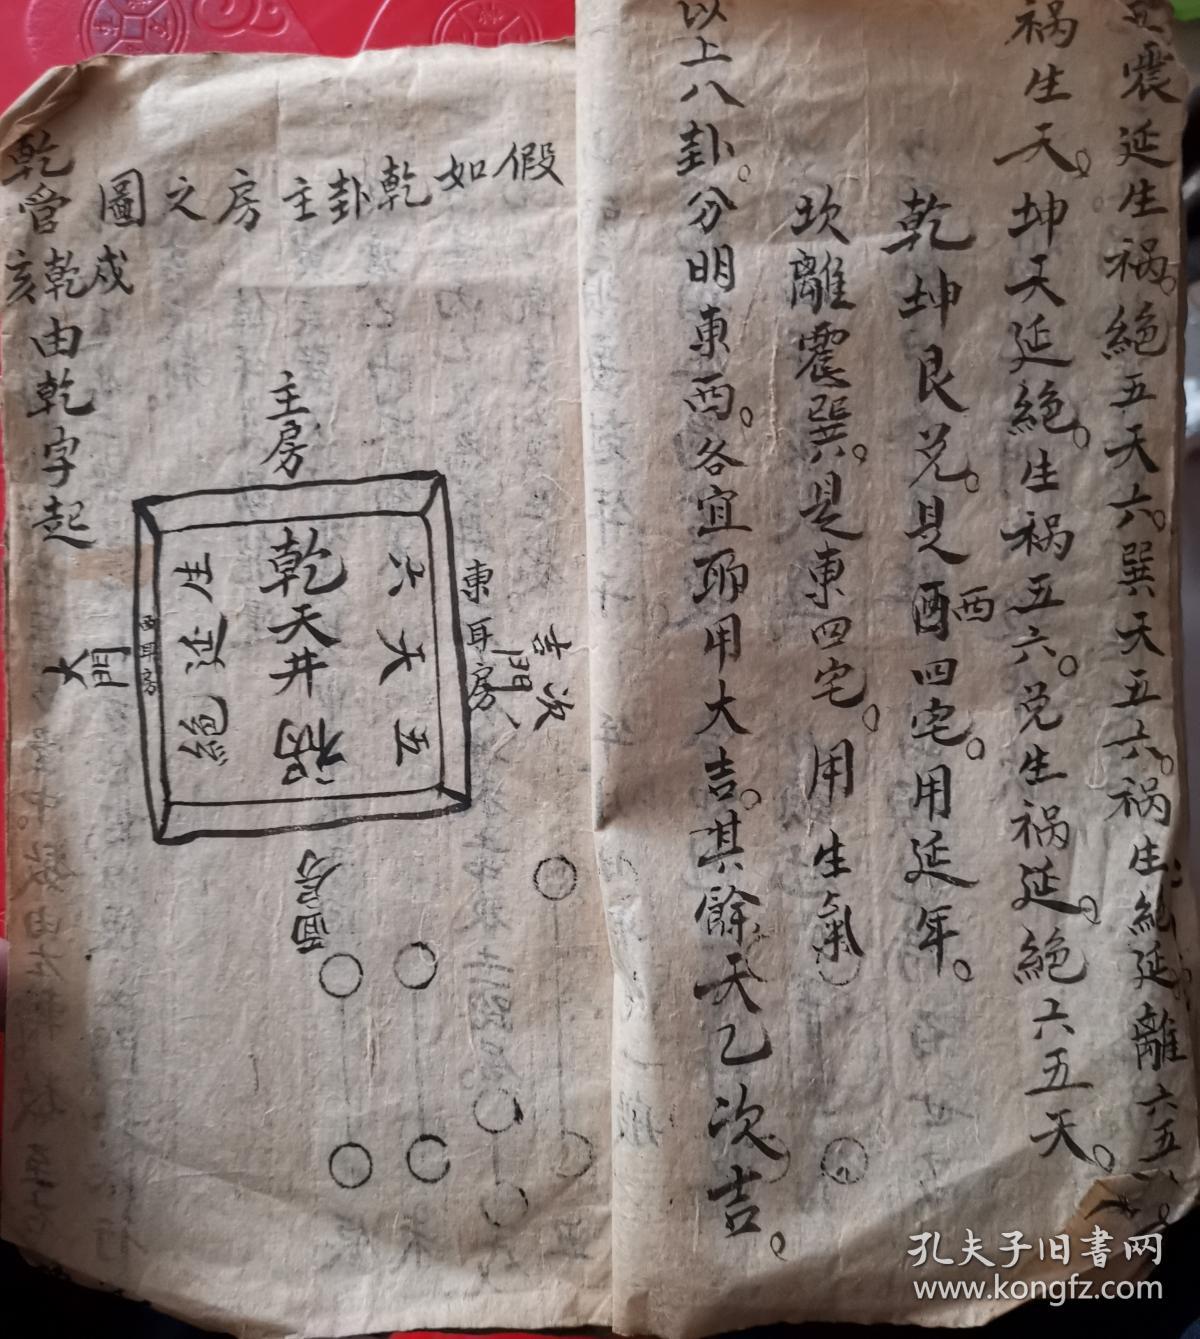 震延生祸。絕五天六。巽天五六。祸生絕延離六五
祸生天。坤天延絕。生祸五六。兑生祸延。絕六五天。
乾坤艮兑。是酉西四宅。用延年。
坎離震巽。是東四宅。用生氣
以上八卦。分明東西。各宜耶用大吉。其餘天乙次吉。
假如乾卦主房之圖
乾宮
戌乾亥
由乾字起
主房
六天五
乾天井
祸
生延絕
東耳房
吉次門
西耳房
大門
面房
孔夫子旧書网
www.kongfz.com